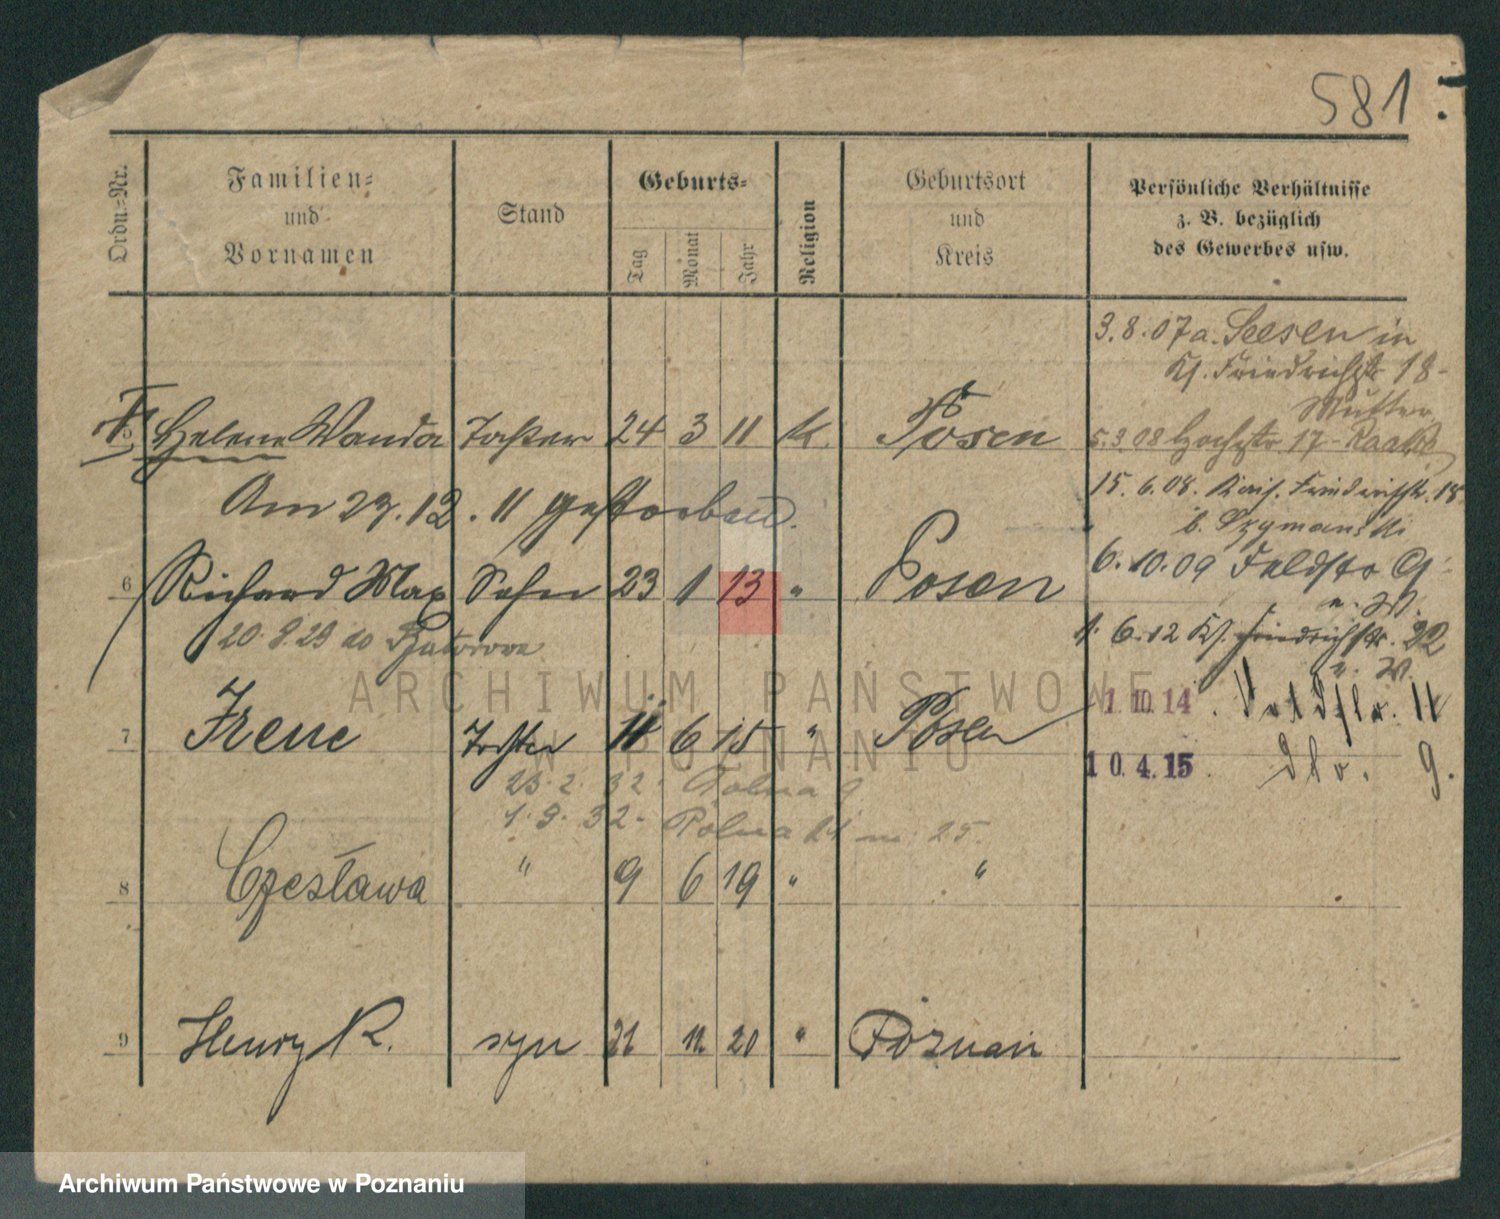 581.
Ordn.-Nr.
Familien-
und
Vornamen
Stand
Geburts-
Tag
Monat
Jahr
Religion
Geburtsort
und
Kreis
Persönliche Verhältnisse
z. B. bezüglich
des Gewerbes usw.
3.8.07 a. Seesen in
Kl. Friedrichstr 18-
Mutter
5 Helene Wanda Tochter 24 3 11 K. Posen
5.3.08 17-
Am 27.12.11 gestorben.
15.6.08. Kais. Friedrichstr. 18
b. Szymanski
6 Richard Max Sohn 23 1 13 " Posen
6.10.09 Feldstr 9
u. W.
20.9.29 do
1.6.12 Kl. Friedrichstr. 22
u. W.
ARCHIWUM PAŃSTWOWE
W POZNANIU
7 Irene Tochter 11 6 15 " Posen
1.10.14. 11
10.4.15. dto. 9.
23.2.32. Polna 9
1.9.32- Polna 21 m 25.
8 Czesława " 9 6 19 " "
9 Henry K. syn 21 11. 20 " Poznań
Archiwum Państwowe w Poznaniu